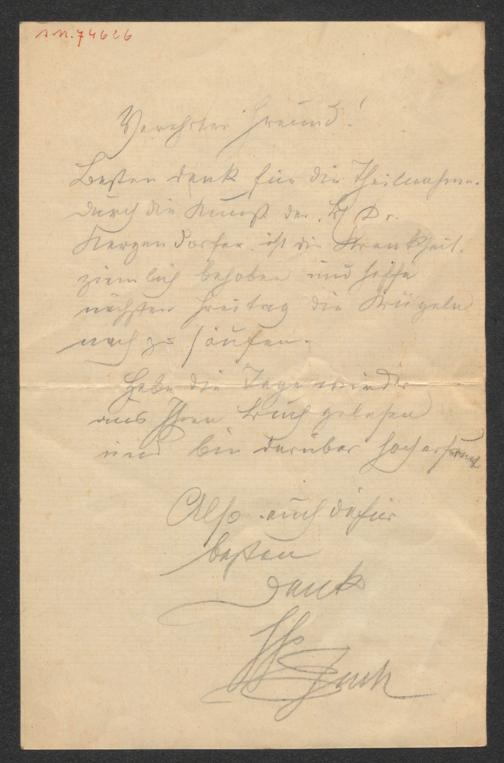 I.N. 74626
Verehrter Freund!
Besten Dank für die Theilnahme.
Durch die Kunst des H Dr.
Kerzendorfer ist die Krankheit
ziemlich behoben und hoffe
nächsten Freitag die Krügeln
nach zu saufen.
Habe die Tage wieder
aus Ihren Buch gelesen
und bin darüber hocherfreut
Also auch dafür
besten
Dank